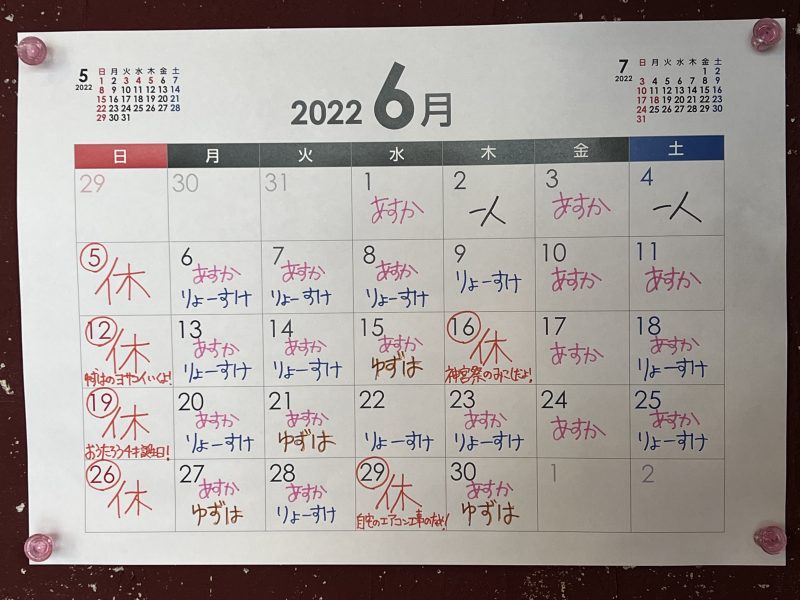 5
2022
日 月 火 水 木 金 土
1 2 3 4 5 6 7
8 9 10 11 12 13 14
15 16 17 18 19 20 21
22 23 24 25 26 27 28
29 30 31
2022 6月
7
2022
日 月 火 水 木 金 土
1 2
3 4 5 6 7 8 9
10 11 12 13 14 15 16
17 18 19 20 21 22 23
24 25 26 27 28 29 30
31
日 月 火 水 木 金 土
29 30 31 1 2 3 4
あすか 一人 あすか 一人
5 6 7 8 9 10 11
休 あすか あすか あすか りょーすけ あすか あすか
りょーすけ りょーすけ りょーすけ
12 13 14 15 16 17 18
休 あすか あすか あすか 休 あすか あすか
ゆずはのヨサコイいくよ! りょーすけ りょーすけ ゆずは 神宮祭のみこしだよ! りょーすけ
19 20 21 22 23 24 25
休 あすか あすか りょーすけ あすか あすか あすか
おうたろう4才誕生日! りょーすけ ゆずは りょーすけ りょーすけ
26 27 28 29 30 1 2
休 あすか あすか 休 あすか
ゆずは りょーすけ 自宅のエアコン工事のため! ゆずは